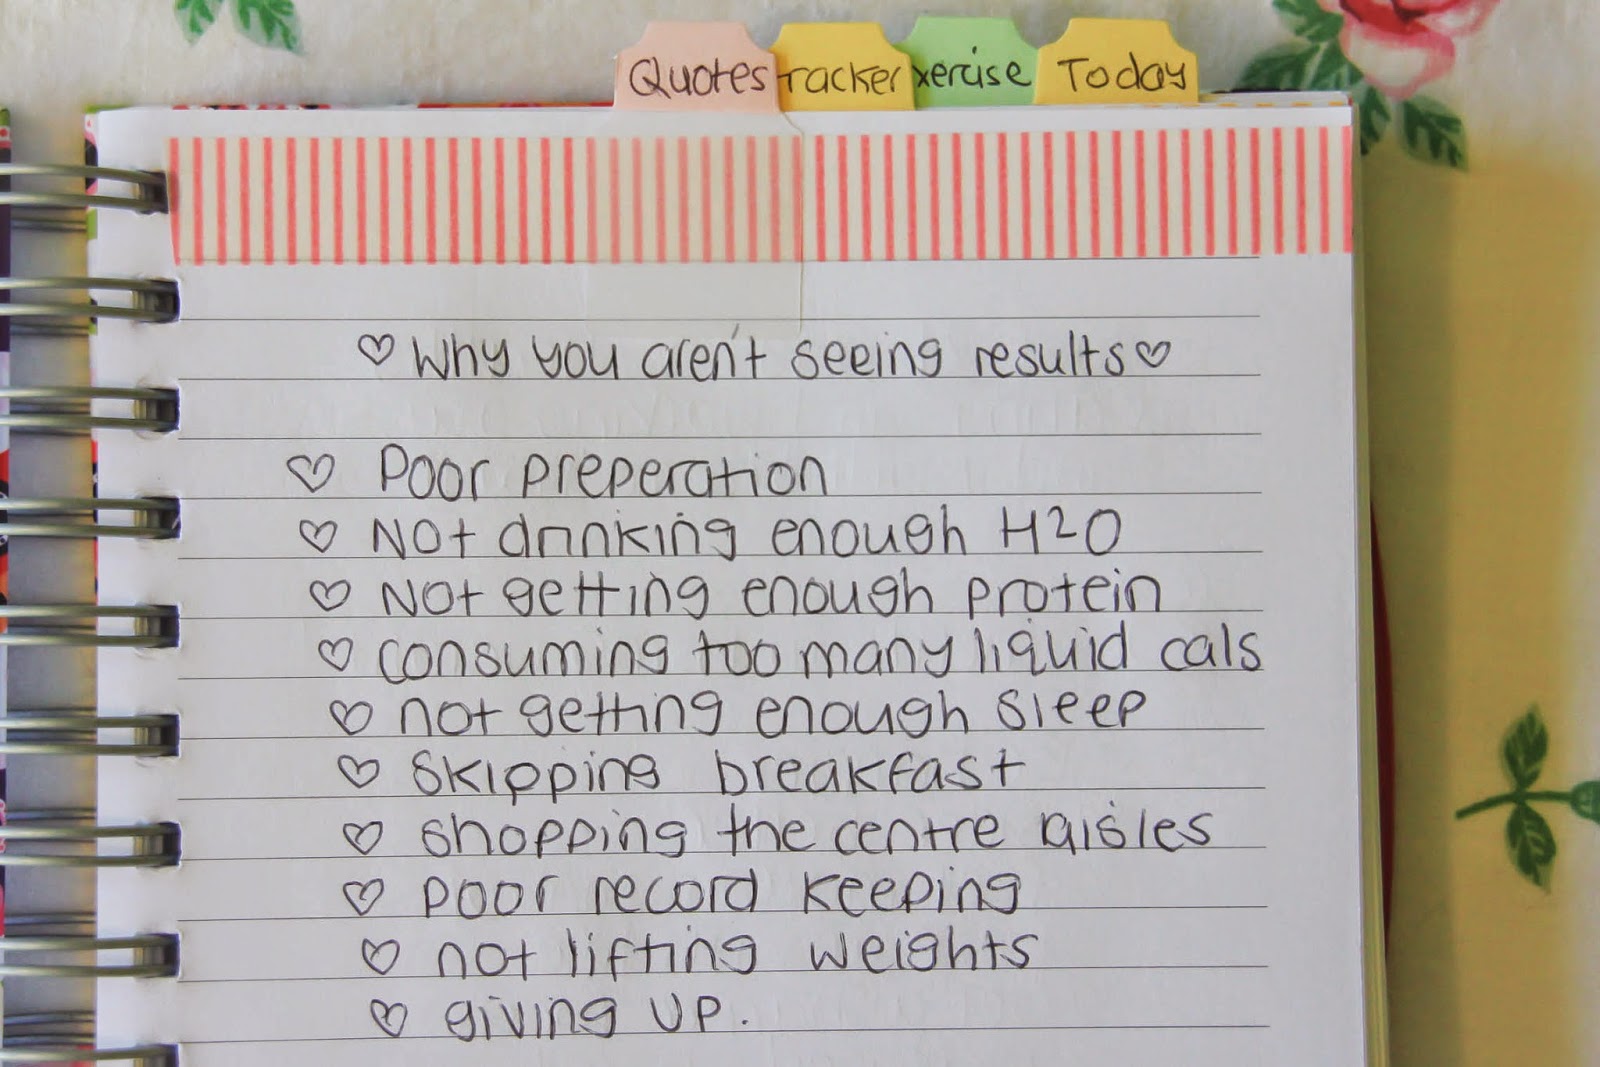 Quotes tracker xercise Today
♡ Why you aren't seeing results ♡
♡ Poor preperation
♡ Not drinking enough H2O
♡ Not getting enough protein
♡ consuming too many liquid cals
♡ not getting enough sleep
♡ skipping breakfast
♡ shopping the centre aisles
♡ poor record keeping
♡ not lifting weights
♡ giving up.